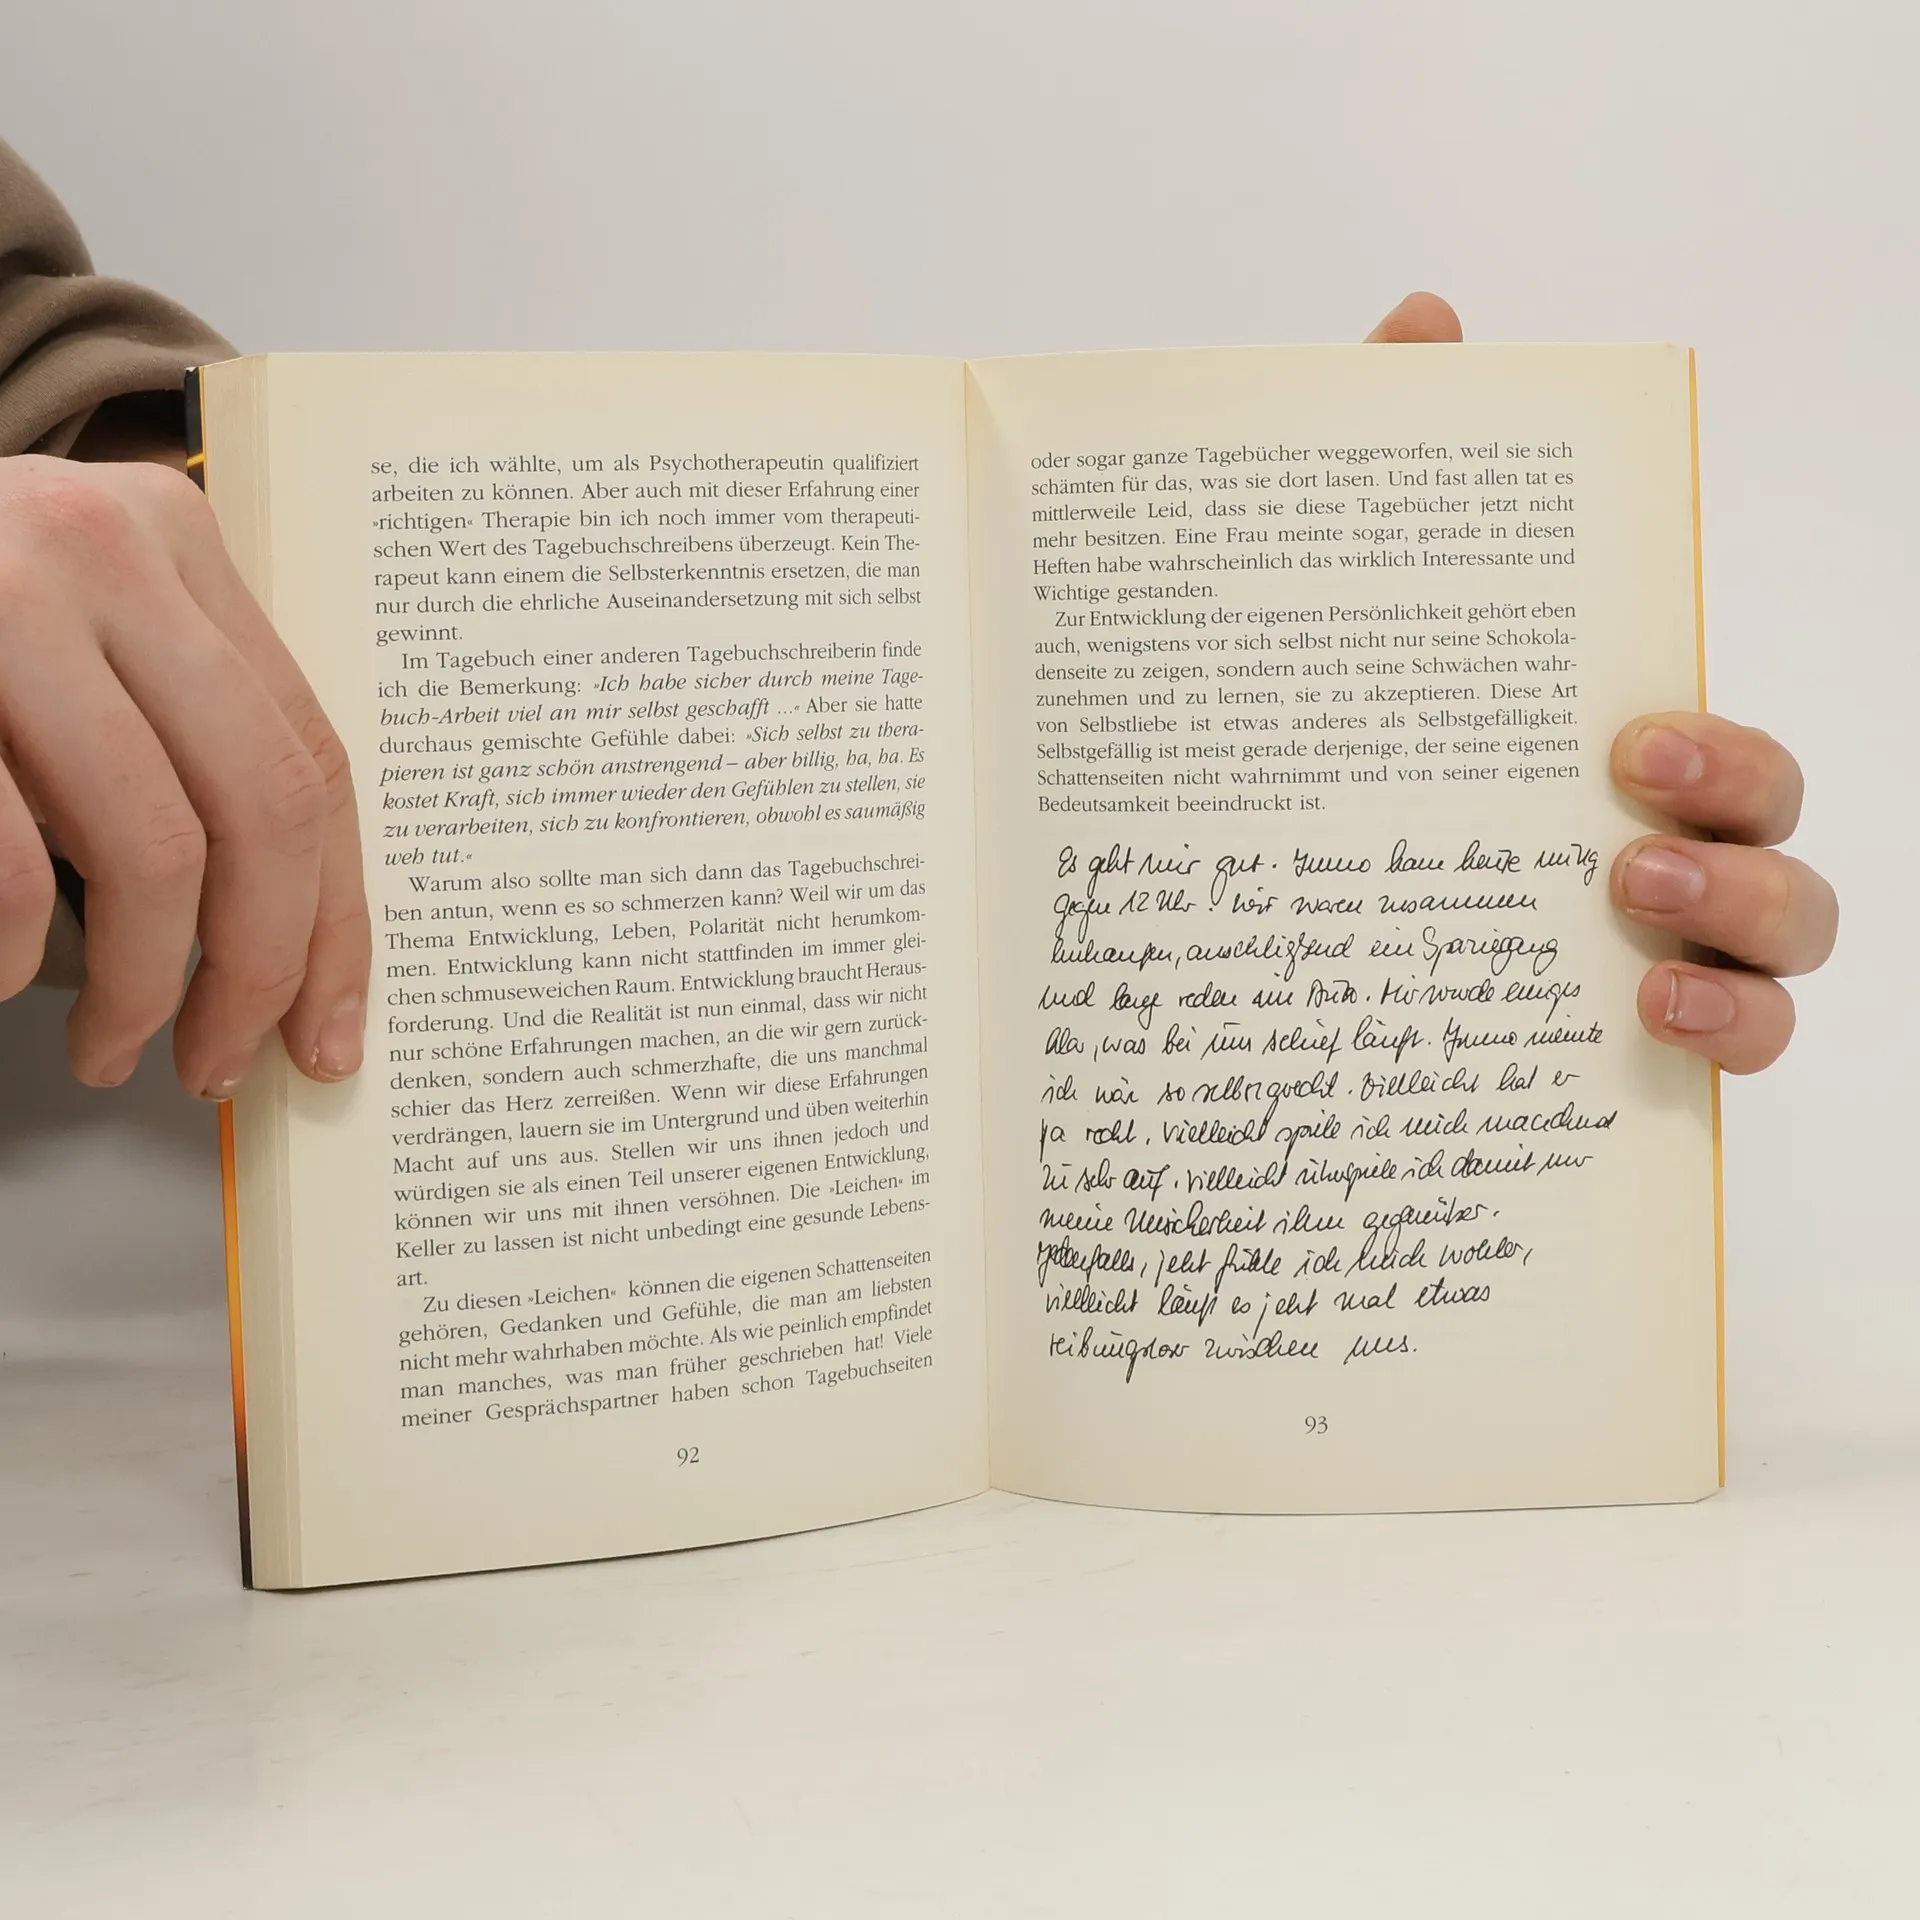 se, die ich wählte, um als Psychotherapeutin qualifiziert
arbeiten zu können. Aber auch mit dieser Erfahrung einer
»richtigen« Therapie bin ich noch immer vom therapeuti-
schen Wert des Tagebuchschreibens überzeugt. Kein The-
rapeut kann einem die Selbsterkenntnis ersetzen, die man
nur durch die ehrliche Auseinandersetzung mit sich selbst
gewinnt.
Im Tagebuch einer anderen Tagebuchschreiberin finde
ich die Bemerkung: »Ich habe sicher durch meine Tage-
buch-Arbeit viel an mir selbst geschafft ...« Aber sie hatte
durchaus gemischte Gefühle dabei: »Sich selbst zu thera-
pieren ist ganz schön anstrengend – aber billig, ha, ha. Es
kostet Kraft, sich immer wieder den Gefühlen zu stellen, sie
zu verarbeiten, sich zu konfrontieren, obwohl es saumäßig
weh tut.«
Warum also sollte man sich dann das Tagebuchschrei-
ben antun, wenn es so schmerzen kann? Weil wir um das
Thema Entwicklung, Leben, Polarität nicht herumkom-
men. Entwicklung kann nicht stattfinden im immer glei-
chen schmuseweichen Raum. Entwicklung braucht Heraus-
forderung. Und die Realität ist nun einmal, dass wir nicht
nur schöne Erfahrungen machen, an die wir gern zurück-
denken, sondern auch schmerzhafte, die uns manchmal
schier das Herz zerreißen. Wenn wir diese Erfahrungen
verdrängen, lauern sie im Untergrund und üben weiterhin
Macht auf uns aus. Stellen wir uns ihnen jedoch und
würdigen sie als einen Teil unserer eigenen Entwicklung,
können wir uns mit ihnen versöhnen. Die »Leichen« im
Keller zu lassen ist nicht unbedingt eine gesunde Lebens-
art.
Zu diesen »Leichen« können die eigenen Schattenseiten
gehören, Gedanken und Gefühle, die man am liebsten
nicht mehr wahrhaben möchte. Als wie peinlich empfindet
man manches, was man früher geschrieben hat! Viele
meiner Gesprächspartner haben schon Tagebuchseiten
92
oder sogar ganze Tagebücher weggeworfen, weil sie sich
schämten für das, was sie dort lasen. Und fast allen tat es
mittlerweile Leid, dass sie diese Tagebücher jetzt nicht
mehr besitzen. Eine Frau meinte sogar, gerade in diesen
Heften habe wahrscheinlich das wirklich Interessante und
Wichtige gestanden.
Zur Entwicklung der eigenen Persönlichkeit gehört eben
auch, wenigstens vor sich selbst nicht nur seine Schokola-
denseite zu zeigen, sondern auch seine Schwächen wahr-
zunehmen und zu lernen, sie zu akzeptieren. Diese Art
von Selbstliebe ist etwas anderes als Selbstgefälligkeit.
Selbstgefällig ist meist gerade derjenige, der seine eigenen
Schattenseiten nicht wahrnimmt und von seiner eigenen
Bedeutsamkeit beeindruckt ist.
Es geht mir gut. Immo kam heute mittag
gegen 12 Uhr. Wir waren zusammen
einkaufen, anschließend ein Spaziergang
und lange reden im Auto. Mir wurde einiges
klar, was bei uns schief läuft. Immo meinte
ich wär so selbstgerecht. Vielleicht hat er
ja recht, vielleicht spiele ich mich manchmal
zu sehr auf. Vielleicht überspiele ich damit nur
meine Unsicherheit ihm gegenüber.
Jedenfalls, jetzt fühle ich mich wohler,
vielleicht läuft es jetzt mal etwas
reibungsloser zwischen uns.
93